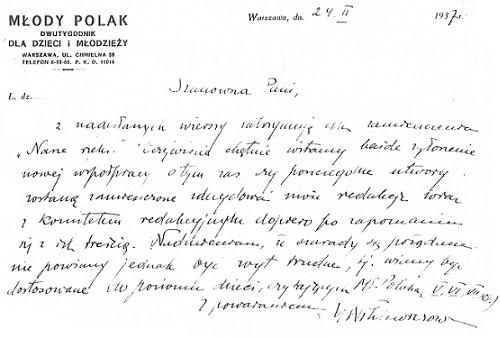 MŁODY POLAK
DWUTYGODNIK
DLA DZIECI i MŁODZIEŻY
WARSZAWA, UL. CHMIELNA
TELEFON P. K. O.
Warszawa, dn. 24. II 1937 r.
L. dz.
Szanowna Pani,
z nadesłanych wierszy zatrzymuję dla zamieszczenia
„Nasze Oczywiście chętnie witamy każde zgłoszenie
nowej współpracy o tym zaś czy poszczególne utwory
zostaną zamieszczone zdecydować może redakcja wraz
z komitetem redakcyjnym dopiero po zapoznaniu
się z ich treścią. Nadmieniam, że szarady są pożądane
nie powinny jednak być zbyt trudne, tj. winny być
dostosowane do poziomu dzieci, czytających Mł. Polaka, V, VI, VII
Z poważaniem